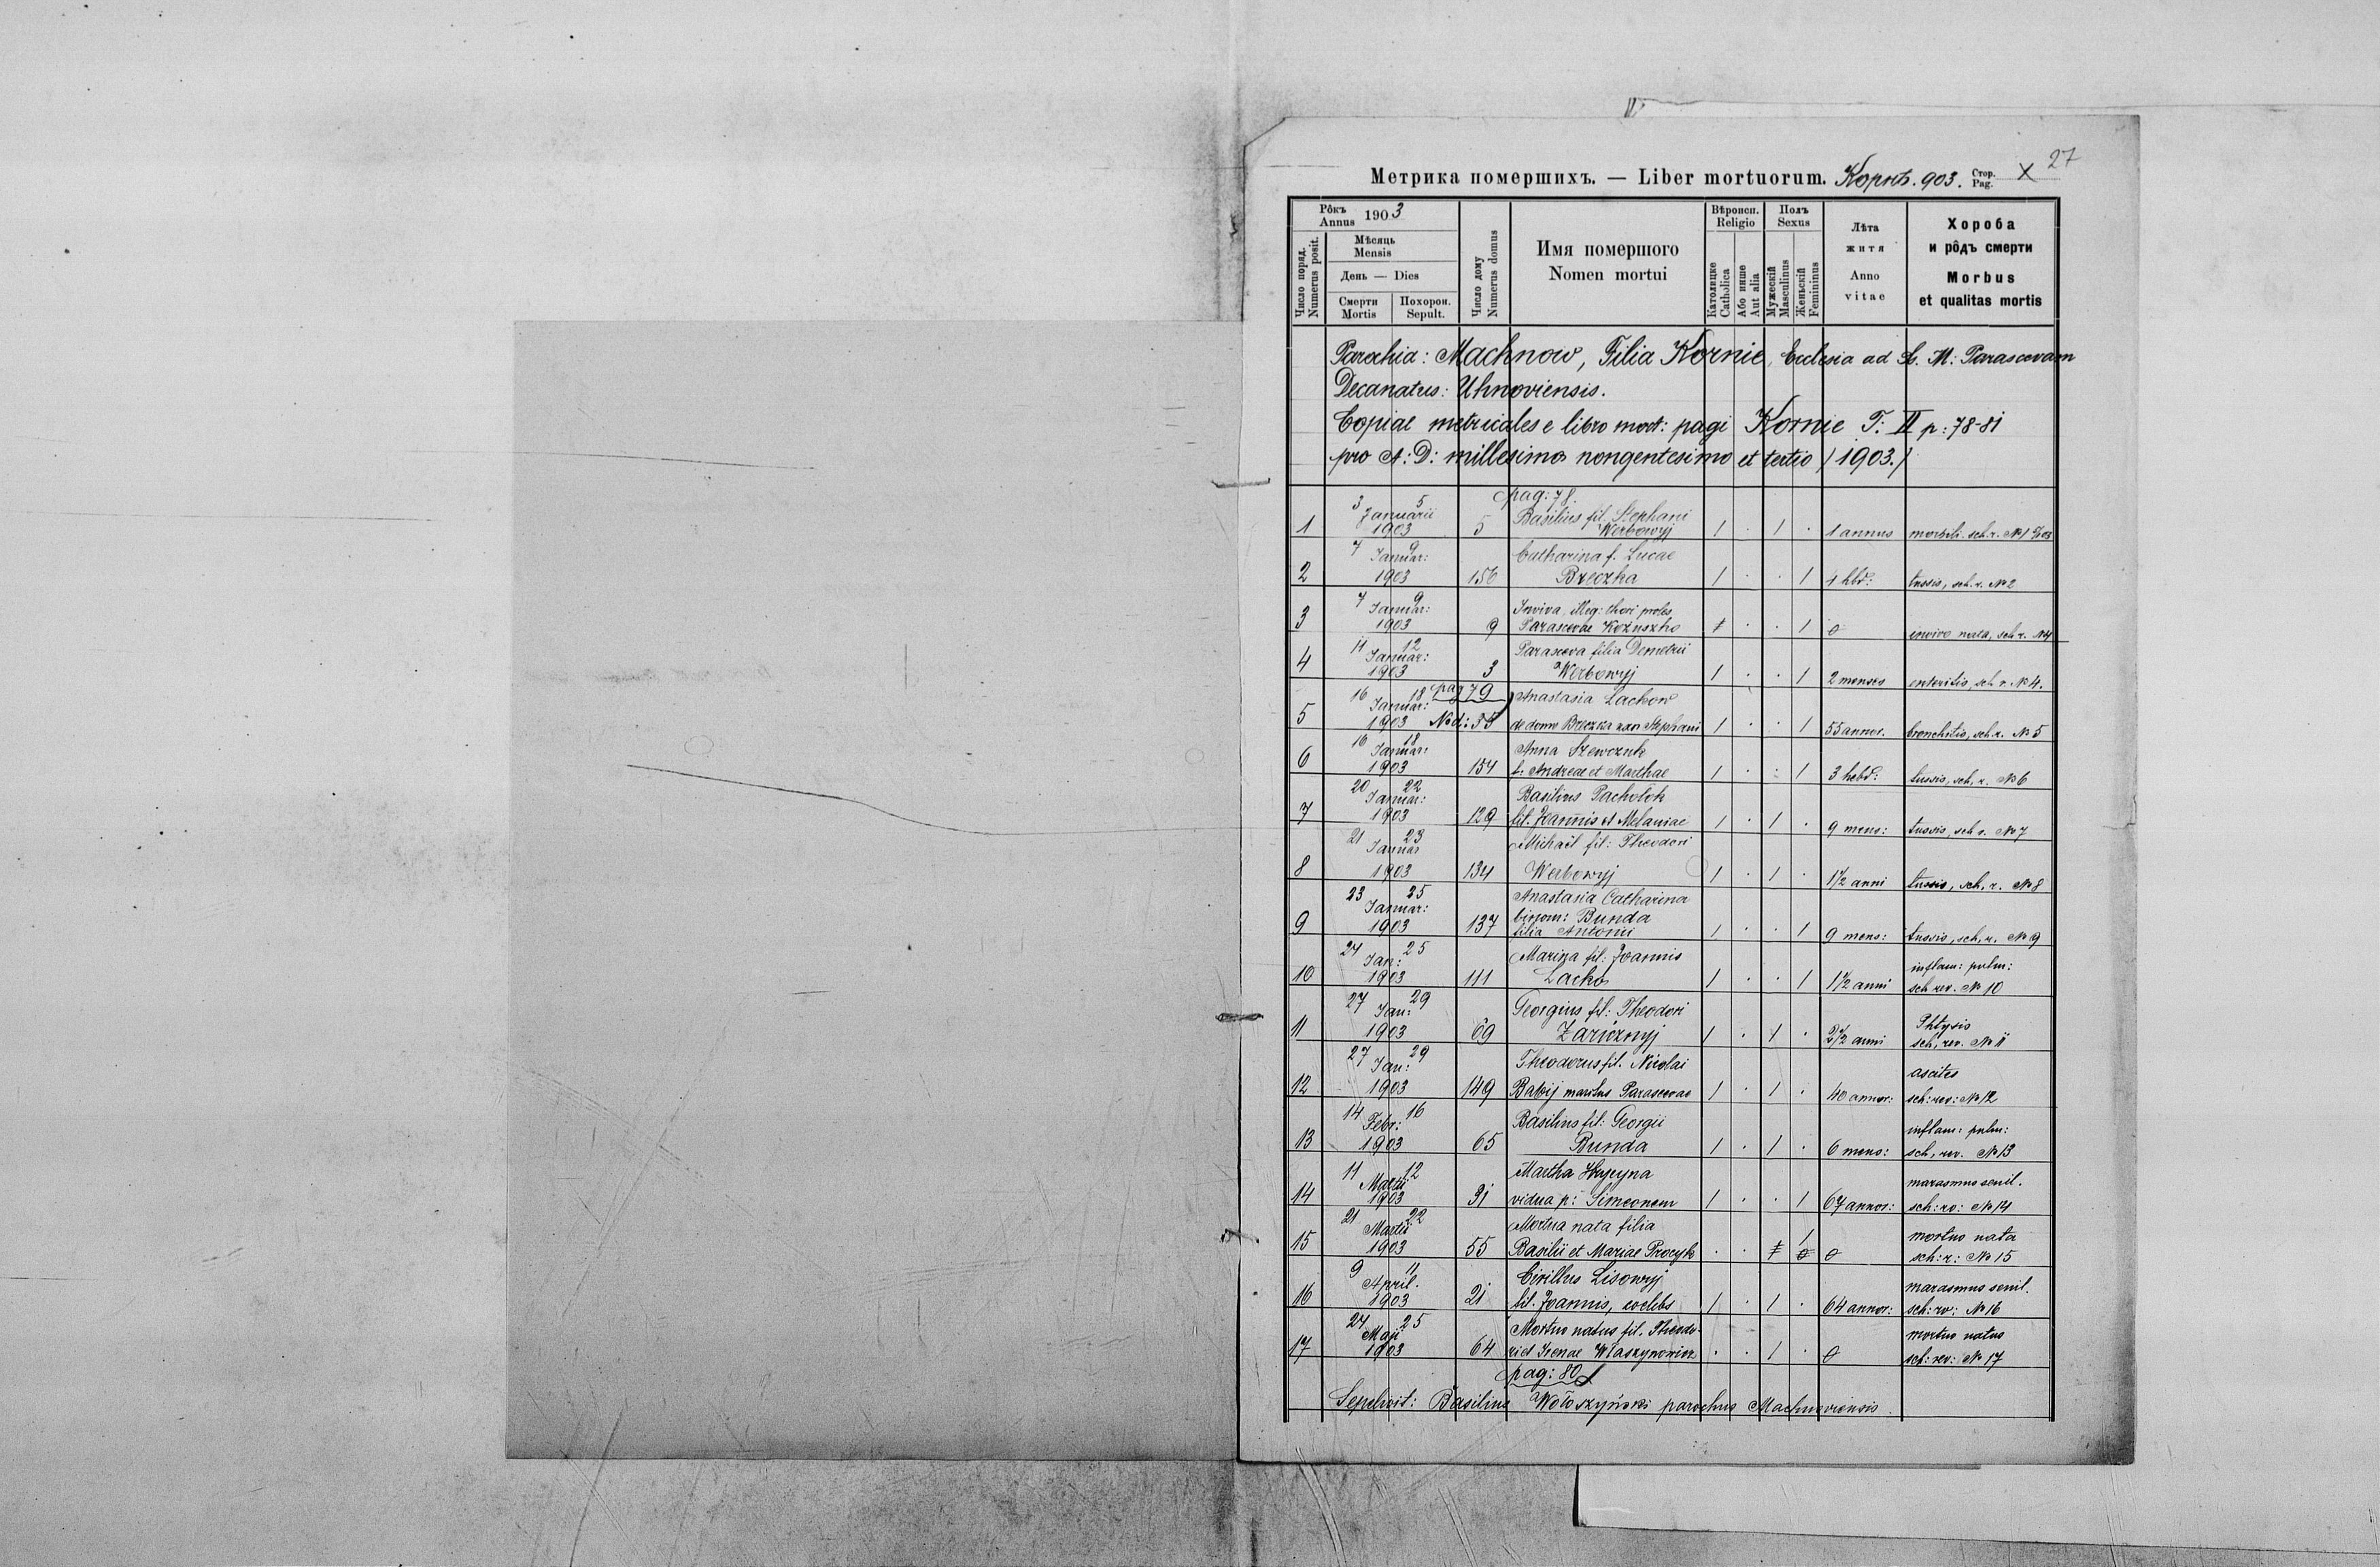 27
Метрика померших. — Liber mortuorum. Корнѣ. 903. Стор. Pag. X
Рôкъ Annus 1903
Число поряд. Numerus posit.
Мѣсяць Mensis
День — Dies
Смерти Mortis
Похорон. Sepult.
Число дому Numerus domus
Имя помершого Nomen mortui
Вѣроисп. Religio
Католицке Catholica
Або инше Aut alia
Полъ Sexus
Мужескій Masculinus
Женьскій Femininus
Лѣта житя Anno vitae
Хороба и рôдъ смерти Morbus et qualitas mortis
Parochia: Machnow, Filia Kornie, Ecclesia ad S. M: Parascevam
Decanatus: Uhnoviensis.
Copiae metricales e libro mort: pagi Kornie T: II p: 78-81
pro A: D: millesimo nongentesimo et tertio /1903./
pag: 78.
1 3 Januarii 5 1903 5 Basilius fil. Stephani Werbowyj 1 . 1 . 1 annus morbili sch. r. № 1
2 7 Januar: 9 1903 156 Catharina f. Lucae Breczka 1 . . 1 1 hbd: tussis, sch. r. № 2
3 7 Januar: 9 1903 9 Inviva, illeg: thori proles Parascevae Kożuszko . . 1 0 invivo nata, sch r. №
4 11 Januar: 12 1903 3 Parasceva filia Demetrii Werbowyj 1 . . 1 2 menses enteritis, sch r. № 4.
pag 79
5 16 Januar: 18 1903 № d: 55 Anastasia Lachow de domo Breczka uxor Stephani 1 . . 1 55 annor. bronchitis, sch r. № 5
6 16 Januar: 18 1903 154 Anna Szewczuk f. Andreae et Marthae 1 . . 1 3 hebd: tussis, sch, r. № 6
7 20 Januar: 22 1903 129 Basilius Pacholok fil. Joannis et Melaniae 1 . 1 . 9 mens: tussis, sch r. № 7
8 21 Januar 23 1903 134 Michaël fil: Theodori Werbowyj 1 . 1 . 1 1/2 anni tussis, sch, r. № 8
9 23 Januar: 25 1903 137 Anastasia Catharina binom: Bunda filia Antonii 1 . . 1 9 mens: tussis, sch, r. № 9
10 24 Jan: 25 1903 111 Marina fil: Joannis Lacko 1 . . 1 1 1/2 anni inflam: pulm: sch rev. № 10
11 27 Jan: 29 1903 69 Georgius fil: Theodori Zaricznyj 1 . 1 . 2 1/2 anni Phtysis sch, rev. № 11
12 27 Jan: 29 1903 149 Theodorus fil. Nicolai Babij maritus Parascevae 1 . 1 . 40 annor: ascites sch: rev: № 12
13 14 Febr: 16 1903 65 Basilius fil: Georgii Bunda 1 . 1 . 6 mens: inflam: pulm: sch, rev. № 13
14 11 Martii 12 1903 31 Martha vidua p: Simeonem 1 . . 1 67 annor: marasmus senil. sch: rv: № 14
15 21 Martii 22 1903 55 Mortua nata filia Basilii et Mariae Procyk . . 1 0 mortuo nata sch: r: № 15
16 9 April. 11 1903 21 Cirillus Lisowyj fil. Joannis, coelebs 1 . 1 . 64 annor: marasmus senil. sch: rv: № 16
17 24 Maji 25 1903 64 Mortuo natus fil. Theodori et Irenae Właszynowicz . . 1 . 0 mortuo natus sch: rev: № 17
pag: 80
Sepelivit: Basilius Wołoszyński parochus Machnoviensis.